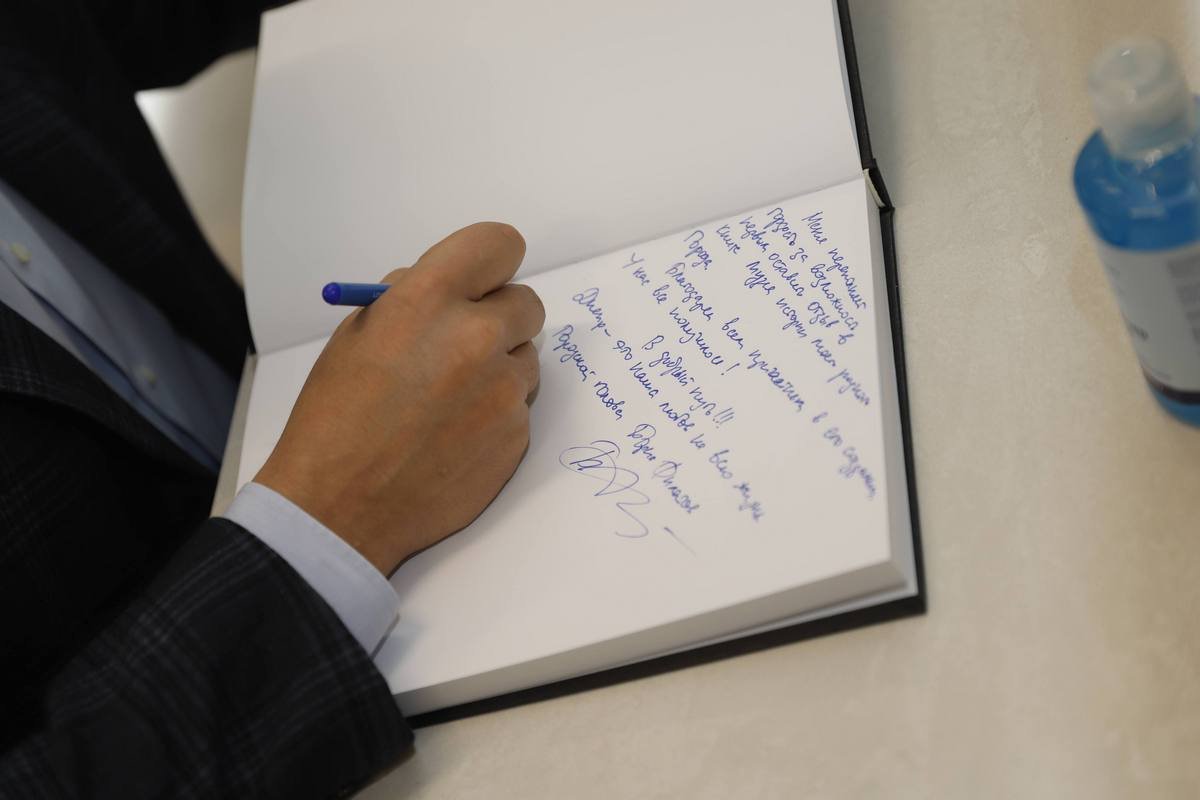 Меня переполняет
гордость за возможность
первым оставить отзыв в
книге музея истории моего родного
города
Благодарен всем причастным, в его создании,
У нас все получилось!
В добрый путь!!!
Днепр - это наша любовь на всю жизнь
Городской голова Борис Филатов